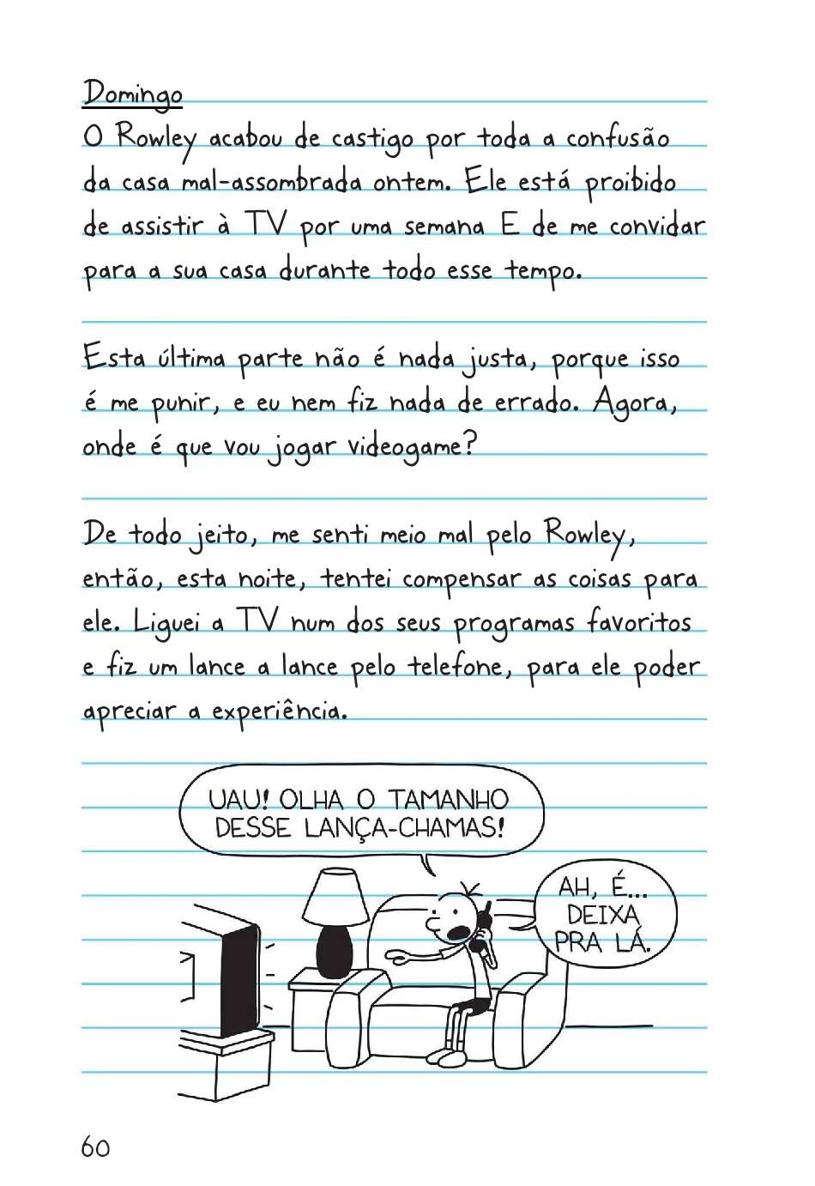 Domingo
O Rowley acabou de castigo por toda a confusão
da casa mal-assombrada ontem. Ele está proibido
de assistir à TV por uma semana E de me convidar
para a sua casa durante todo esse tempo.
Esta última parte não é nada justa, porque isso
é me punir, e eu nem fiz nada de errado. Agora,
onde é que vou jogar videogame?
De todo jeito, me senti meio mal pelo Rowley,
então, esta noite, tentei compensar as coisas para
ele. Liguei a TV num dos seus programas favoritos
e fiz um lance a lance pelo telefone, para ele poder
apreciar a experiência.
UAU! OLHA O TAMANHO
DESSE LANÇA-CHAMAS!
AH, É...
DEIXA
PRA LÁ.
60